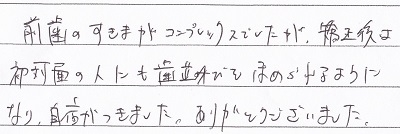 前歯のすきまがコンプレックスでしたが、矯正後は
初対面の人にも歯並びをほめられるように
なり、自信がつきました。ありがとうございました。